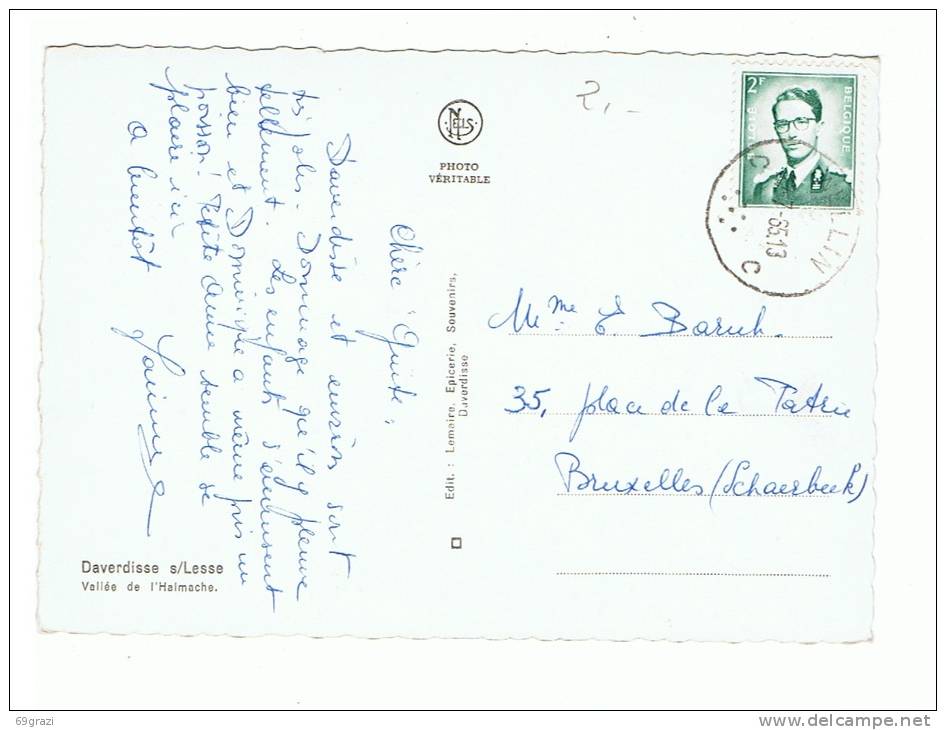 Chère "Guite",
Daverdisse et environ sont
très jolis. Dommage qu'il y pleuve
tellement. Les enfants s'amusent
bien et Dominique a même pris un
poisson! Petite Année semble se
plaire ici
A bientôt
2,-
NELS
PHOTO
VÉRITABLE
2F
BELGIQUE
BELGIË
LLIN
-65 13
C C
Mme E Baruh.
35, place de la Patrie
Bruxelles (Schaerbeek)
Edit. : Lemaire, Epicerie, Souvenirs,
Daverdisse
Daverdisse s/Lesse
Vallée de l'Halmache.
69grazi
delcampe.net